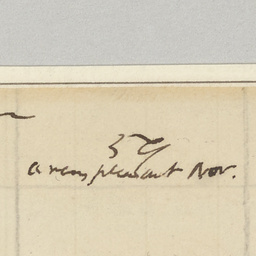 a very pleasant Nov.